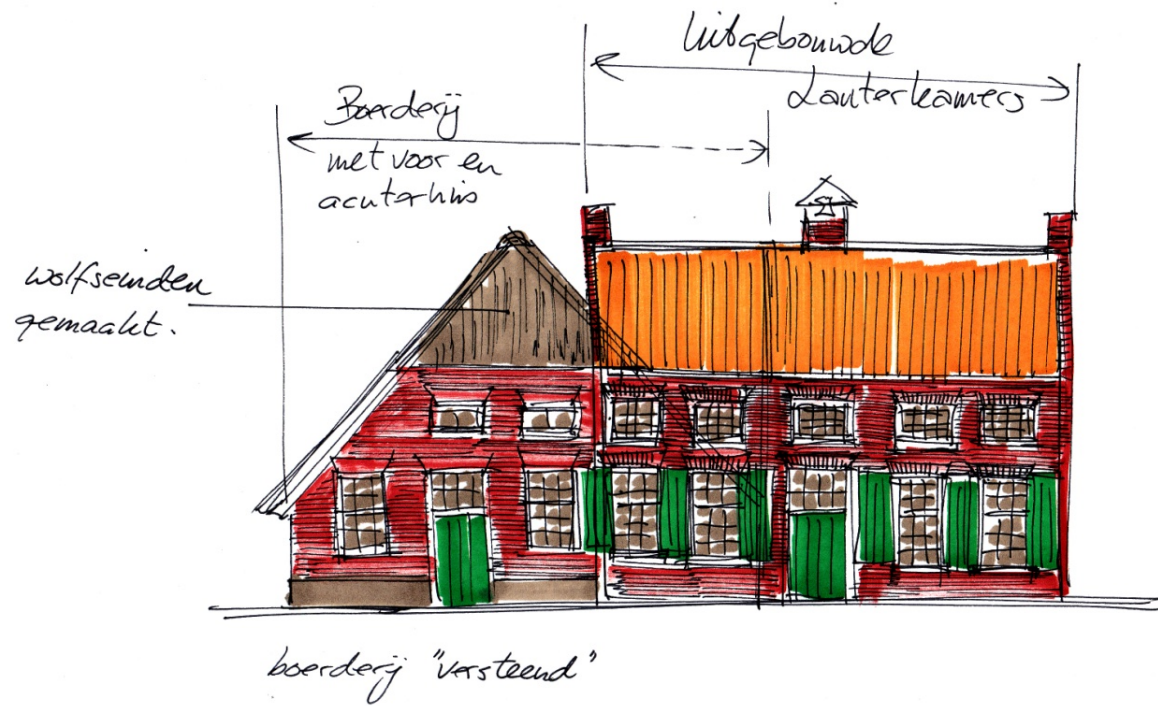 Uitgebouwde
Boerderij
met voor en
achterhuis
wolfseinden
gemaakt.
boerderij "versteend"